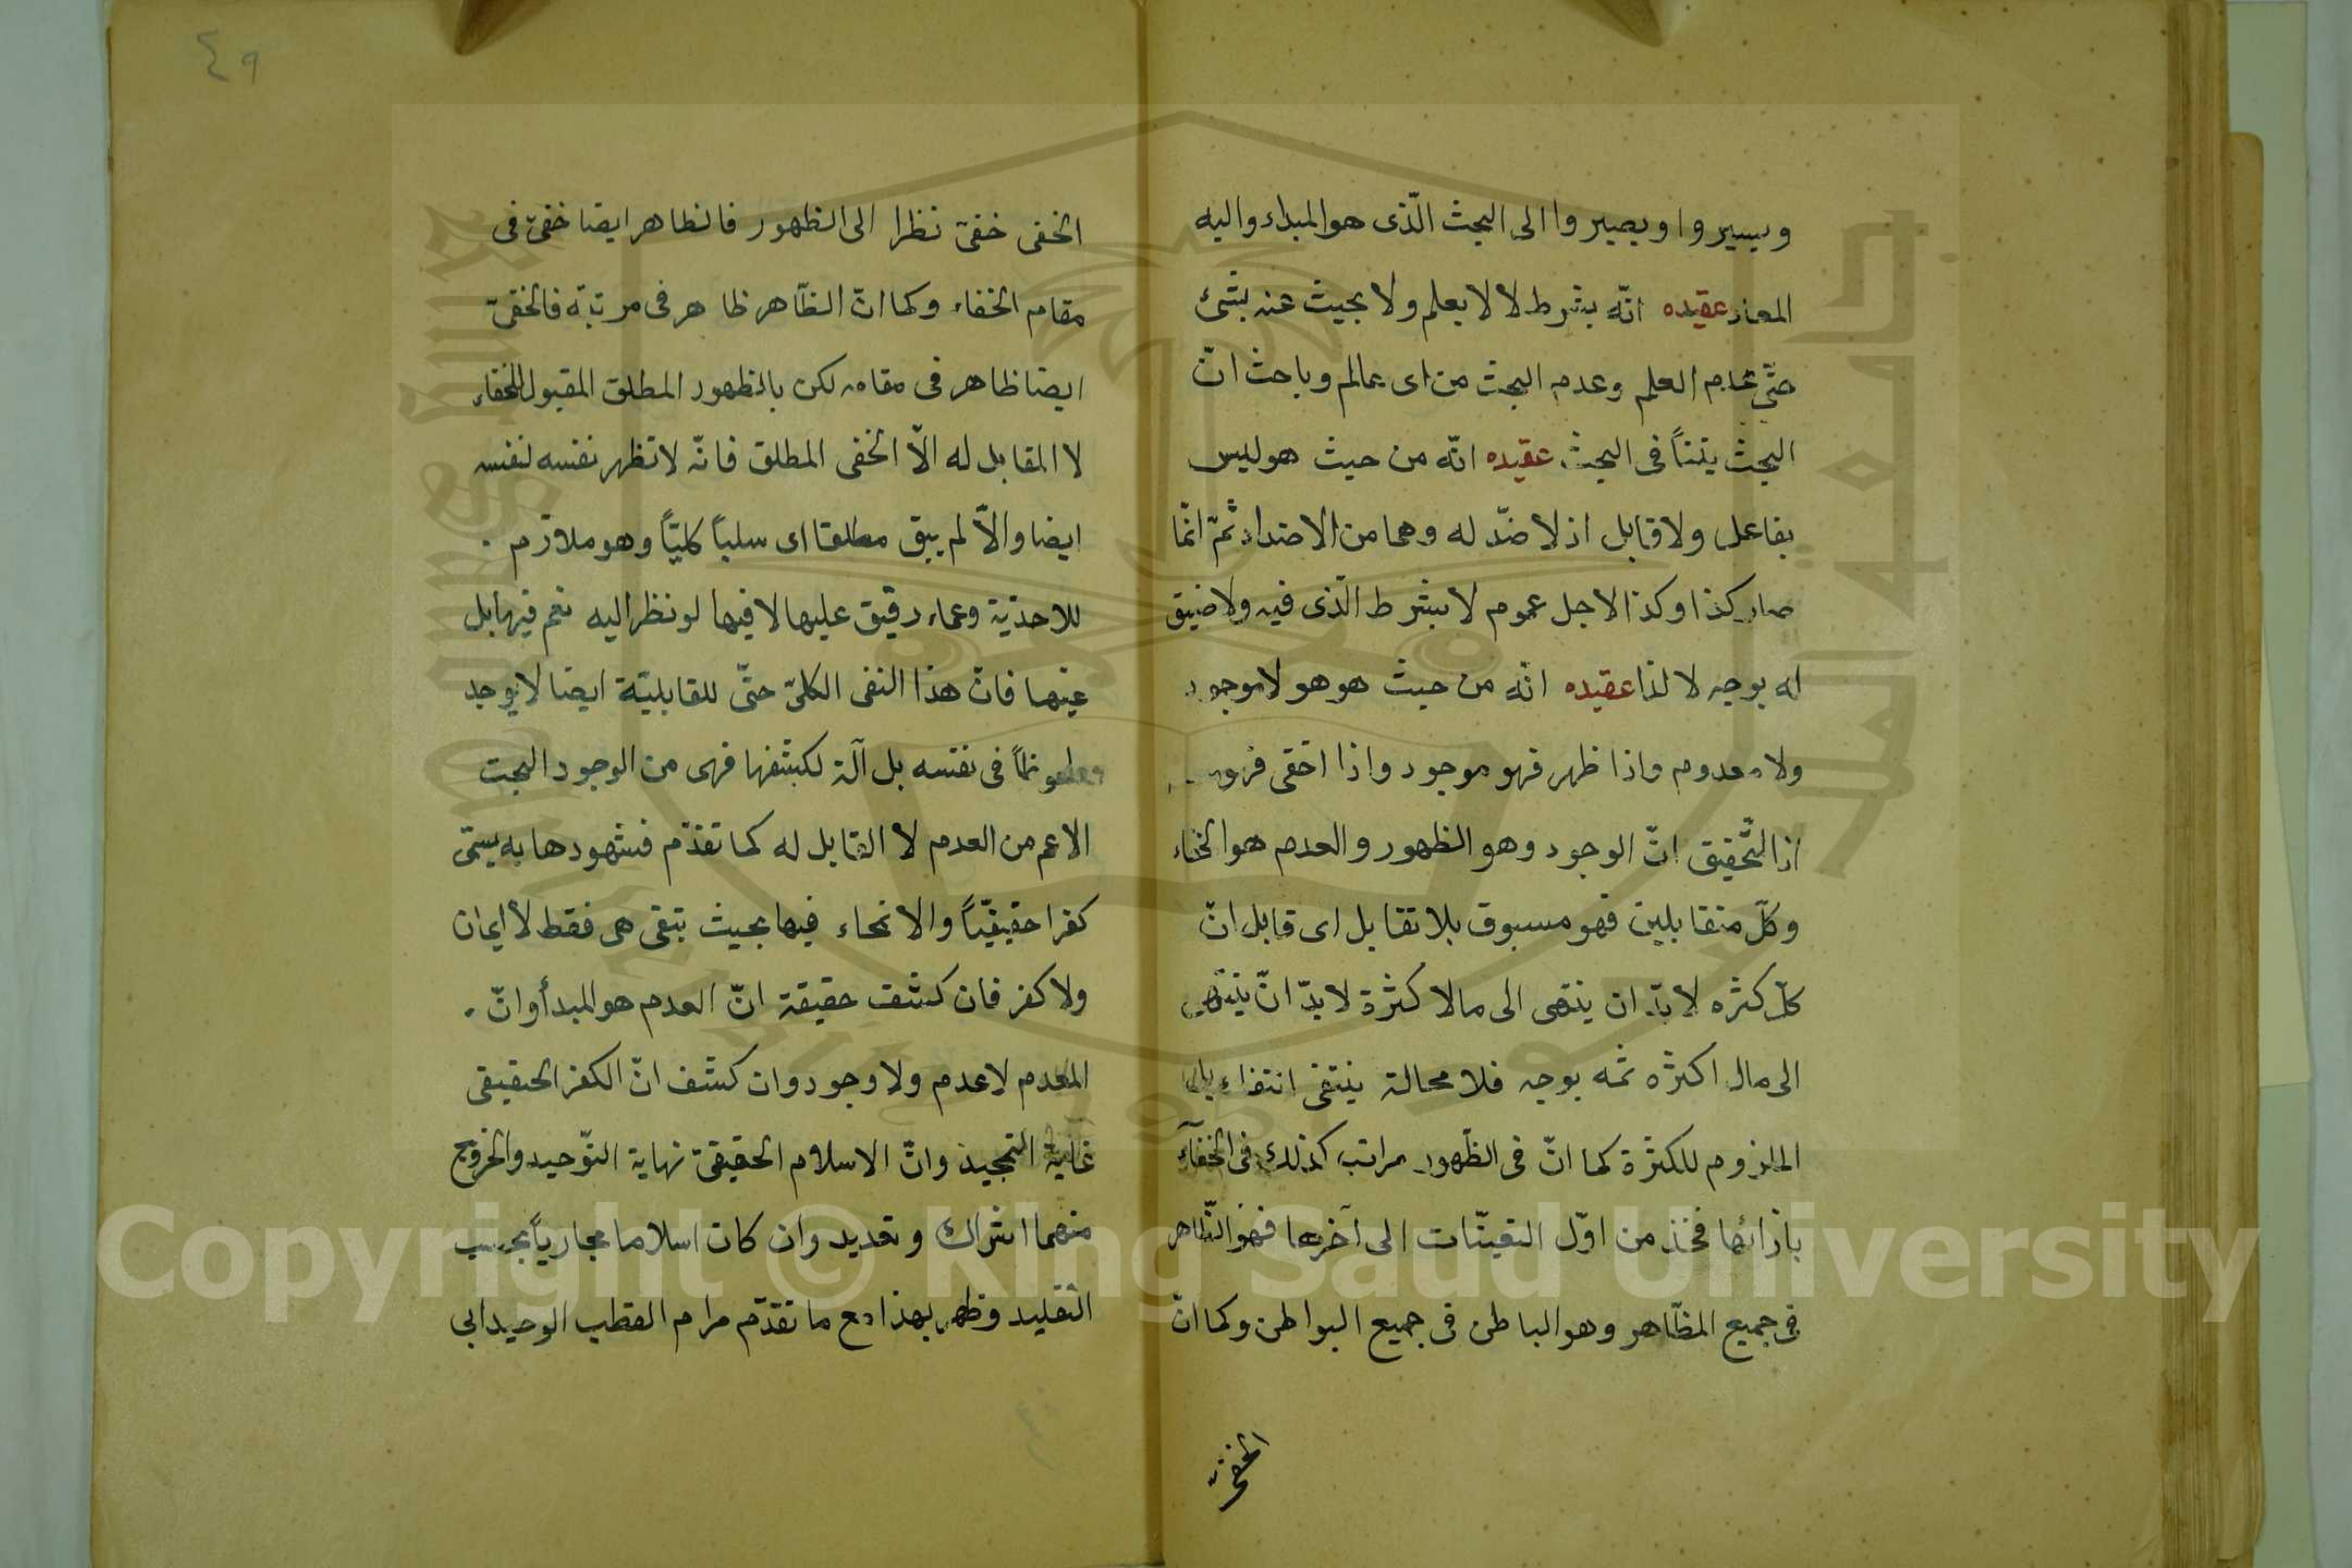 ويسيروا ويصيروا الى البحث الّذى هو المبداء واليه
المعاد عقيده انّه بشرط لا لا يعلم ولا بحيث عنه بشئ
حتّى عدم العلم وعدم البحث من اى عالم وباحث انّ
البحث يتنأ فى البحث عقيده انّه من حيث هو ليس
بفاعل ولا قابل اذ لا ضدّ له وهما من الاضداد ثمّ انّما
صار كذا وكذا لاجل عموم لا بشرط الّذى فيه ولا ضيق
له بوجه لا لذا عقيده انّه من حيث هو هو لا موجود
ولا معدوم واذا ظهر فهو موجود واذا اخفى فهو
اذ التّحقيق انّ الوجود وهو الظهور والعدم هو الخفاء
وكلّ متقابلين فهو مسبوق بلا تقابل اى قابل انّ
كلّ كثره لا بدّ ان ينتهى الى مالا كثرة لا بدّ انّ ينتهى
الى مالا كثره ثمه بوجه فلا محالة ينتفى انتفاء
الملزوم للكثرة كما انّ فى الظّهور مراتب كذلك فى الخفآء
بازائها فخذ من اوّل التعيّنات الى آخرها فهو الظّاهر
فى جميع المظّاهر وهو الباطن فى جميع البواطن وكما انّ
الخفىّ
٤٩
الخفى خفىّ نظرا الى الظهور فالظاهر ايضا خفىّ فى
مقام الخفاء وكما انّ الظّاهر ظاهر فى مرتبته فالخفىّ
ايضا ظاهر فى مقامه لكن بالظهور المطلق المقبول للخفاء
لا المقابل له الّا الخفى المطلق فانّه لا تظهر نفسه لنفسه
ايضا والّا لم يبق مطلقا اى سلباً كليّاً وهو ملازم
للاحديّة وعماء رقيق عليها لا فيها لو نظر اليه نعم فيها بل
عينها فانّ هذا النفى الكلىّ حتّى للقابليّة ايضا لا يوجد
فى نفسه بل آلة لكشفها فهى من الوجود البحت
الاعم من العدم لا القابل له كما تقدّم فشهودها به يسمّى
كفرا حقيقيّاً والانحاء فيها بحيث تبقى هى فقط لا ايمان
ولا كفر فان كشفت حقيقة انّ العدم هو المبدأ وانّ
المعدم لا عدم ولا وجود وان كشف انّ الكفر الحقيقى
غاية التمجيد وانّ الاسلام الحقيقىّ نهاية التّوحيد والخروج
منهما اشراك وتعديد وان كان اسلاما مجازياً بحسب
التقليد وظهر بهذا مع ما تقدّم مرام القطب الوحيد ابى
Copyright © King Saud University